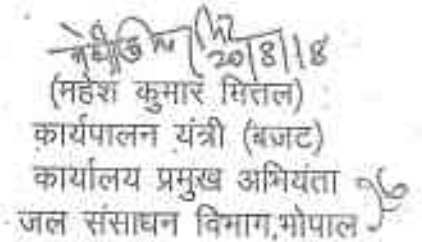 20/8/18
(महेश कुमार मित्तल)
कार्यपालन यंत्री (बजट)
कार्यालय प्रमुख अभियंता
जल संसाधन विभाग,भोपाल